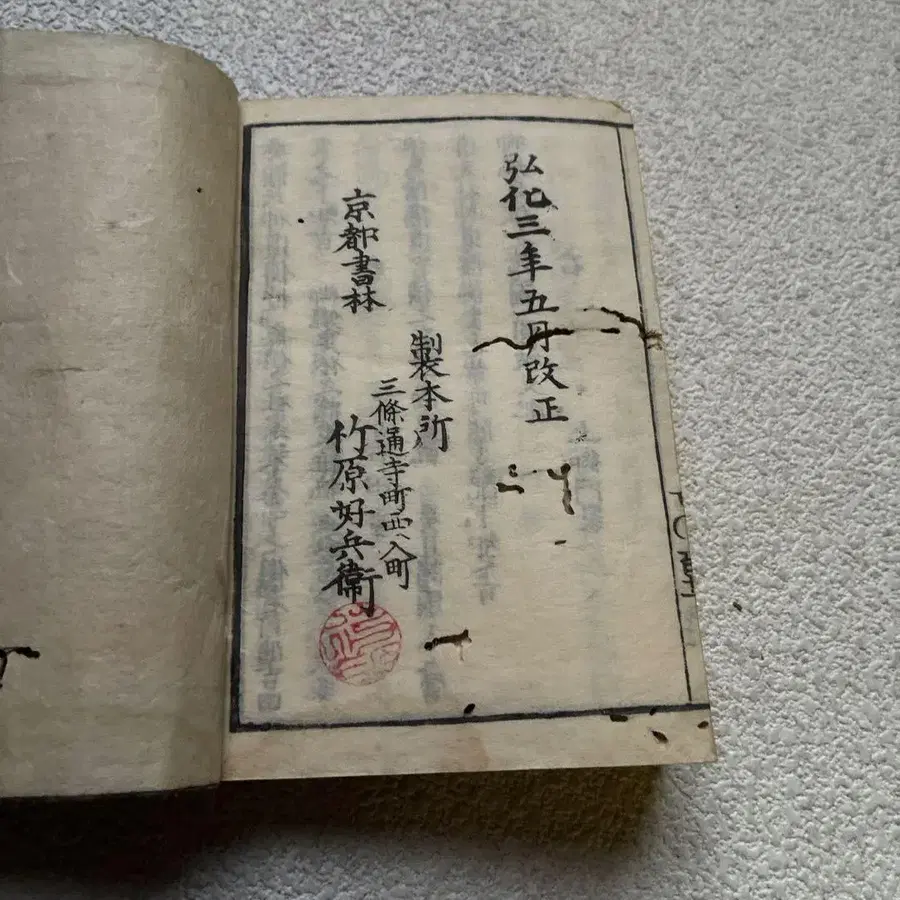 弘化三年五月改正
京都書林
製本所
三條通寺町西入町
竹原好兵衛